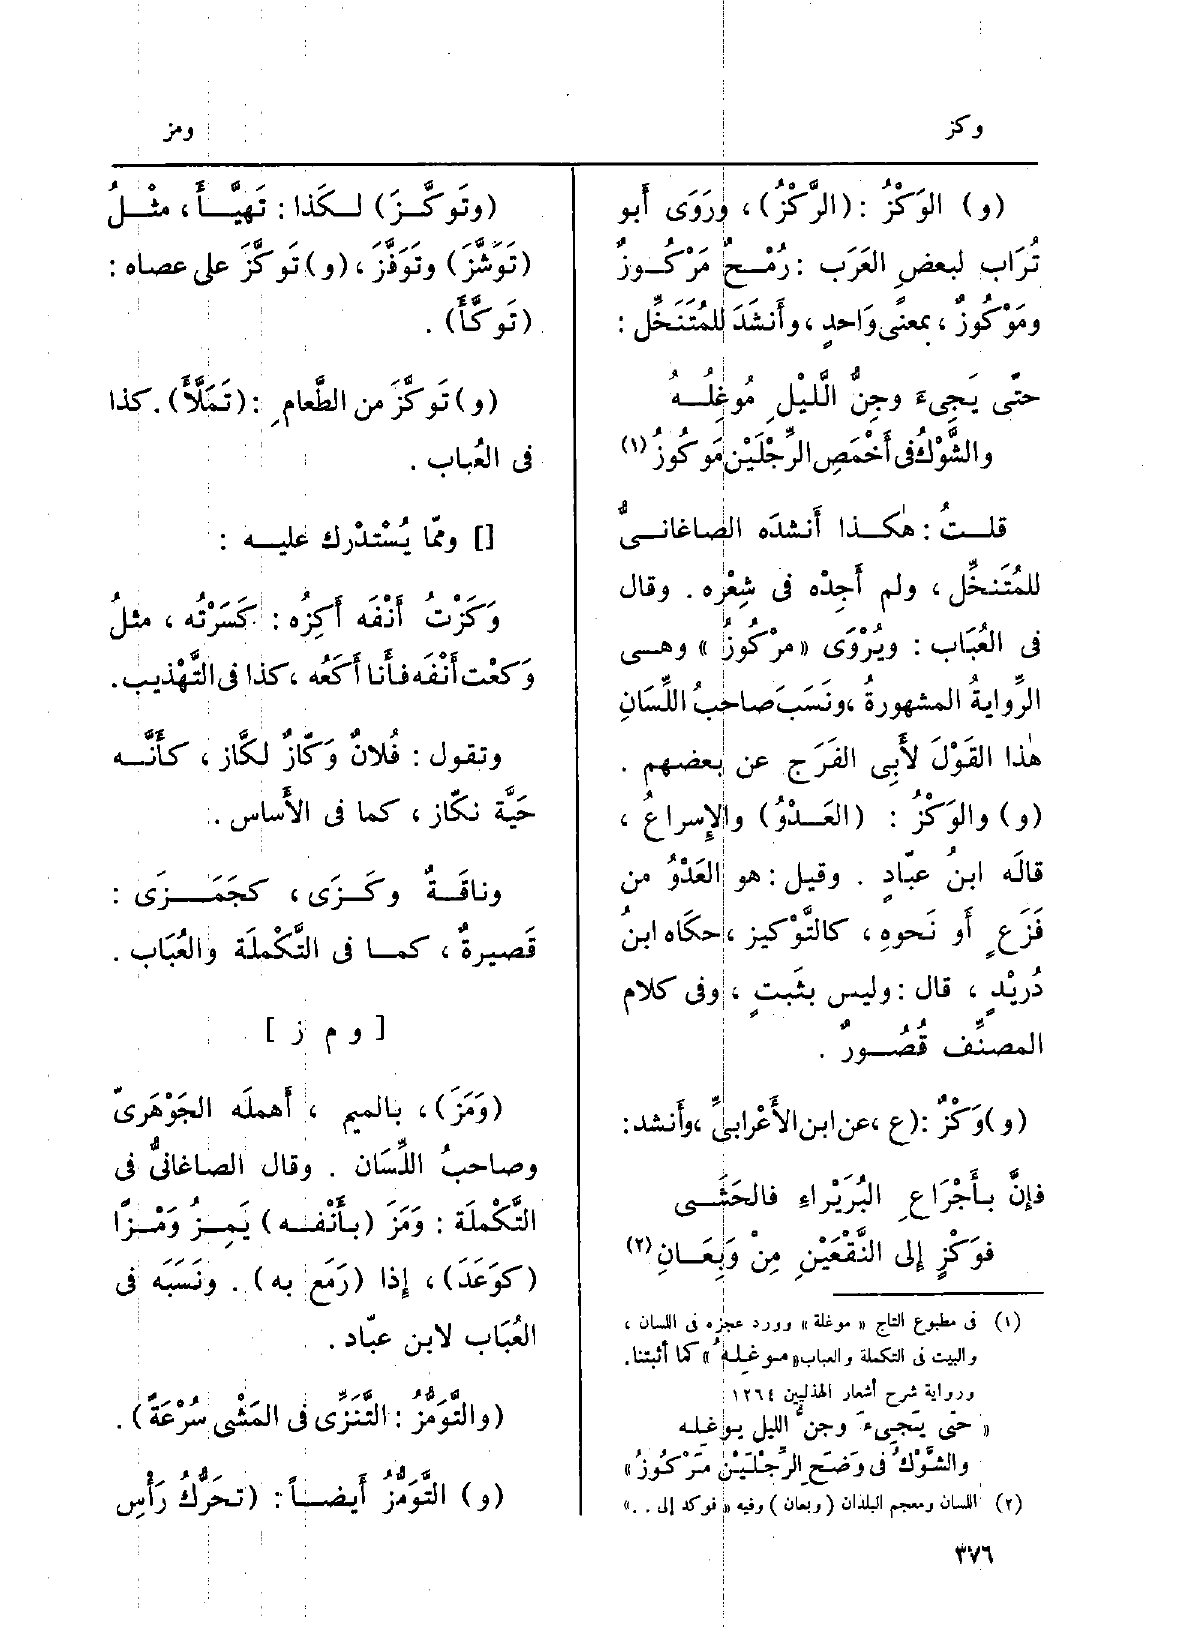 وكز
ومز
(و) الوَكْزُ : (الرَّكْزُ)، ورَوَى أَبو
تُرَاب لبعضِ العَرَب : رُمْحٌ مَرْكُوزٌ
ومَوْكُوزٌ ، بمعنًى وَاحدٍ ، وأَنشَدَ للمُتَنَخِّل :
حتّى يَجِىءَ وجِنُّ الَّليلِ مُوغِلُه
والشَّوْكُ فى أَخْمَصِ الرِّجْلَيْن مَوكُوزُ (١)
قلتُ : هٰكذا أَنشدَه الصاغانىُّ
للمُتَنخِّل ، ولم أَجِدْه فى شِعْرِه . وقال
فى العُبَاب : ويُرْوَى «مرْكُوزُ » وهى
الرِّوايةُ المشهورةُ ، ونَسَبَ صاحبُ اللِّسَانِ
هٰذا القَوْلَ لأَبِى الفَرَج عن بعضهم .
(و) والوَكْزُ : (العَدْوُ) والإِسراعُ ،
قالَه ابنُ عبّادٍ . وقيل : هو العَدْوُ من
فَزَعٍ أَو نَحوِهِ ، كالتَّوْكيز ، حكاه ابنُ
دُرَيْدٍ ، قال : وليس بثَبتٍ ، وفى كلام
المصنِّف قُصُورٌ .
(و) وَكْزٌ : (ع ، عن ابن الأَعْرابىِّ ، وأَنشد :
فإِنَّ بأَجْرَاعِ البُرَيْراءِ فالحَشَى
فوَكْزٍ إِلى النَّقْعَيْنِ مِنْ وَبِعَانِ (٢)
(١) فى مطبوع التاج « موغلة » وورد عجزه فى اللسان ،
والبيت فى التكملة والعباب « موغِلهُ » كما أثبتنا.
ورواية شرح أشعار الهذليين ١٢٦٤
« حتى يَجِىءَ وجنُّ الليل يوغِله
والشَّوْكُ فى وَضَحِ الرِّجْلَيْنِ مَرْكُوزُ »
(٢) اللسان ومعجم البلدان ( وبعان ) وفيه « فوكد إلى . . »
(وتَوكَّزَ) لكَذا : تَهيَّأَ ، مثْلُ
(تَوَشَّزَ) وتَوَفَّزَ ، (و) تَوكَّزَ على عصاه :
(تَوكَّأَ) .
(و) تَوكَّزَ من الطَّعامِ : (تَمَلَّأَ) . كذا
فى العُباب .
[] وممّا يُسْتدْرك عليه :
وَكَزْتُ أَنْفَه أَكِزُه : كَسَرْتُه ، مثلُ
وَكَعْت أَنْفَه فأَنا أَكَعُه ، كذا فى التَّهْذِيب.
وتقول : فُلانٌ وَكّازٌ لكَّاز ، كأَنَّه
حَيَّة نكّاز ، كما فى الأَساس .
وناقَةٌ وكَزَى ، كجَمَزَى :
قَصيرةٌ ، كما فى التَّكْملَة والعُبَاب .
[ و م ز ]
(وَمَزَ) ، بالميم ، أَهملَه الجَوْهَرىّ
وصاحبُ اللِّسَان . وقال الصاغانىُّ فى
التَّكْملَة : وَمَزَ (بأَنْفه) يَمِزُ وَمْزًا
(كوَعَدَ) ، إِذا (رَمَع به) . ونَسَبَه فى
العُبَاب لابن عبّاد .
(والتَّوَمُّزُ : التَّنَزِّى فى المَشْىِ سُرْعَةً) .
(و) التَّوَمُّزُ أَيضاً : (تَحرُّكُ رَأْسِ
٣٧٦